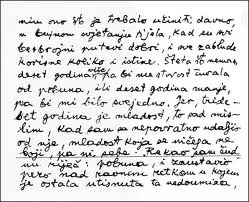 nimu ono što je trebalo učiniti davno,
u bujnom cvjetanju tijela, kad su svi
bezbrojni putevi dobri, i sve zablude
korisne koliko i istine. Šteta što nemam
deset godina više, pa bi me starost čuvala
od pobuna, ili deset godina manje,
pa bi mi bilo svejedno. Jer, tride-
set godina je mladost, to sad mis-
lim, kad sam se nepovratno udaljio
od nje, mladost koja se ničega ne
boji, pa ni sebe. Rekao sam čud-
nu riječ: pobuna, i zaustavio
pero nad ravnim retkom u kojem
je ostala utisnuta ta nedoumica,